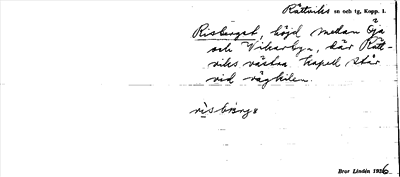 Rättviks sn och tg, Kopp. l.
Risberget, höjd mellan Öja
och Vikarbyn, där Rätt-
viks västra kapell står
vid vägkilen.
Bror Lindén 1926